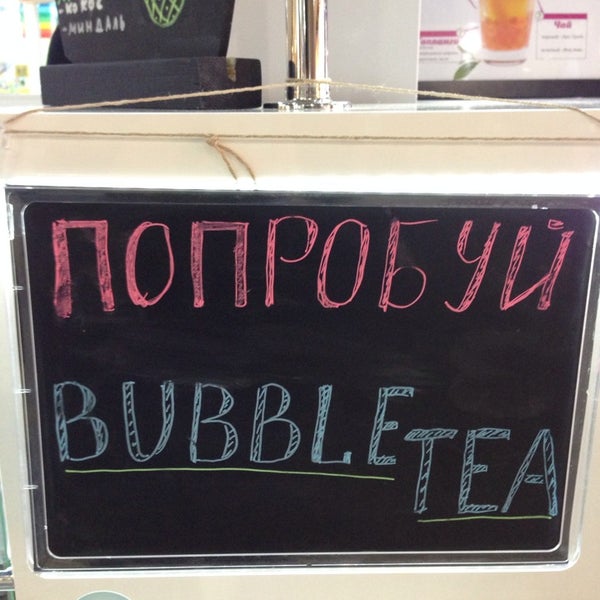 -КОКОС
-МИНДАЛЬ
Чай
ПОПРОБУЙ
BUBBLE
TEA